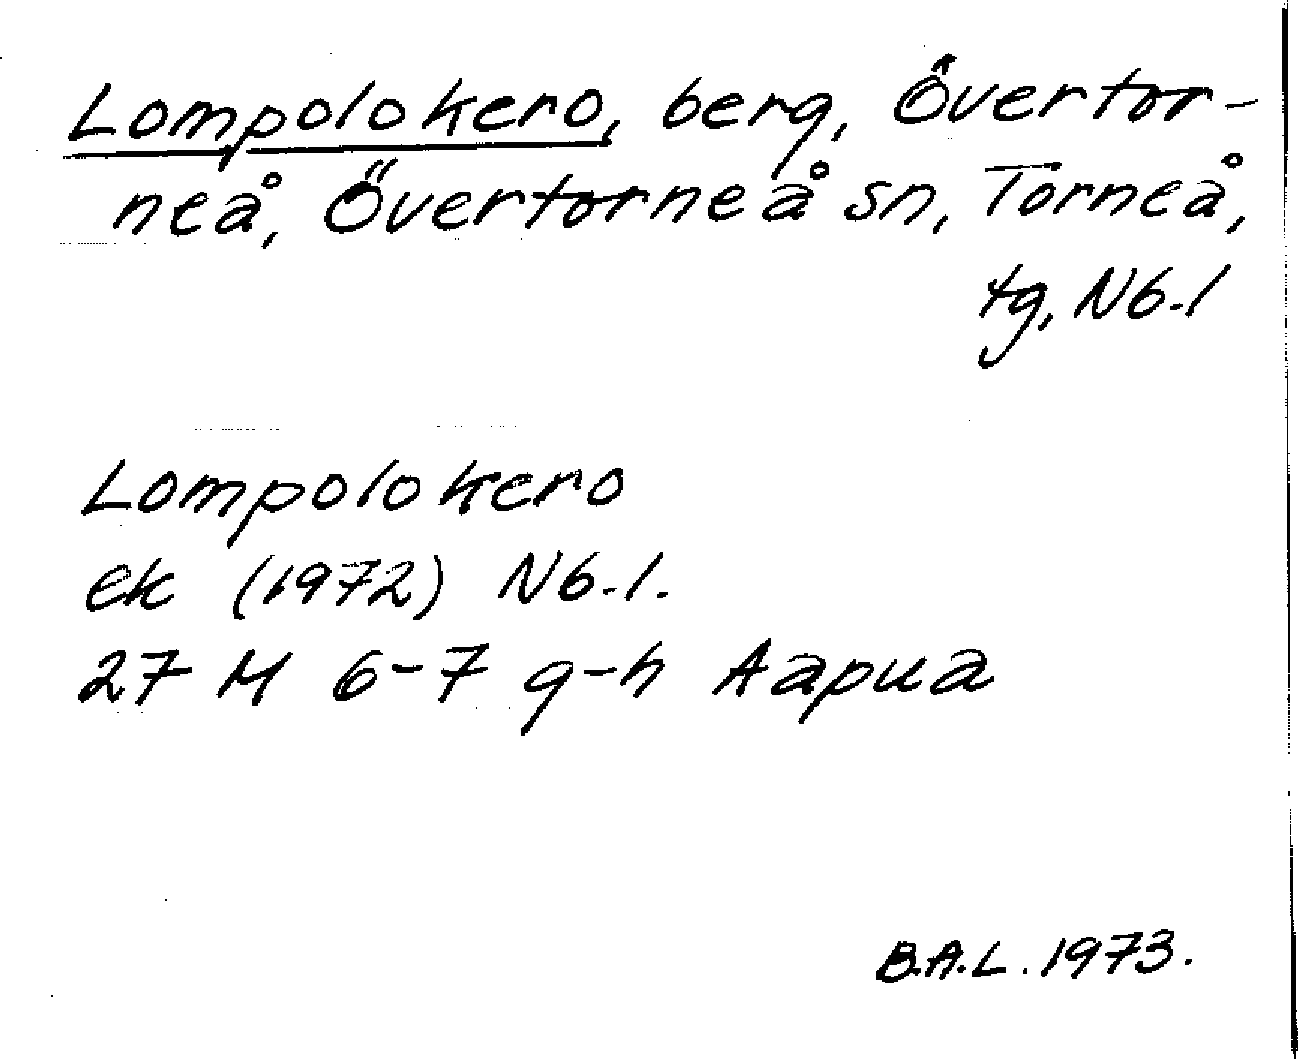 Lompolokero, berg, Övertor-
neå, Övertorneå sn, Torneå,
tg, Nb.l
Lompolokero
ek (1972) Nb.l.
27 M 6-7 g-h Aapua
B.A.L. 1973.